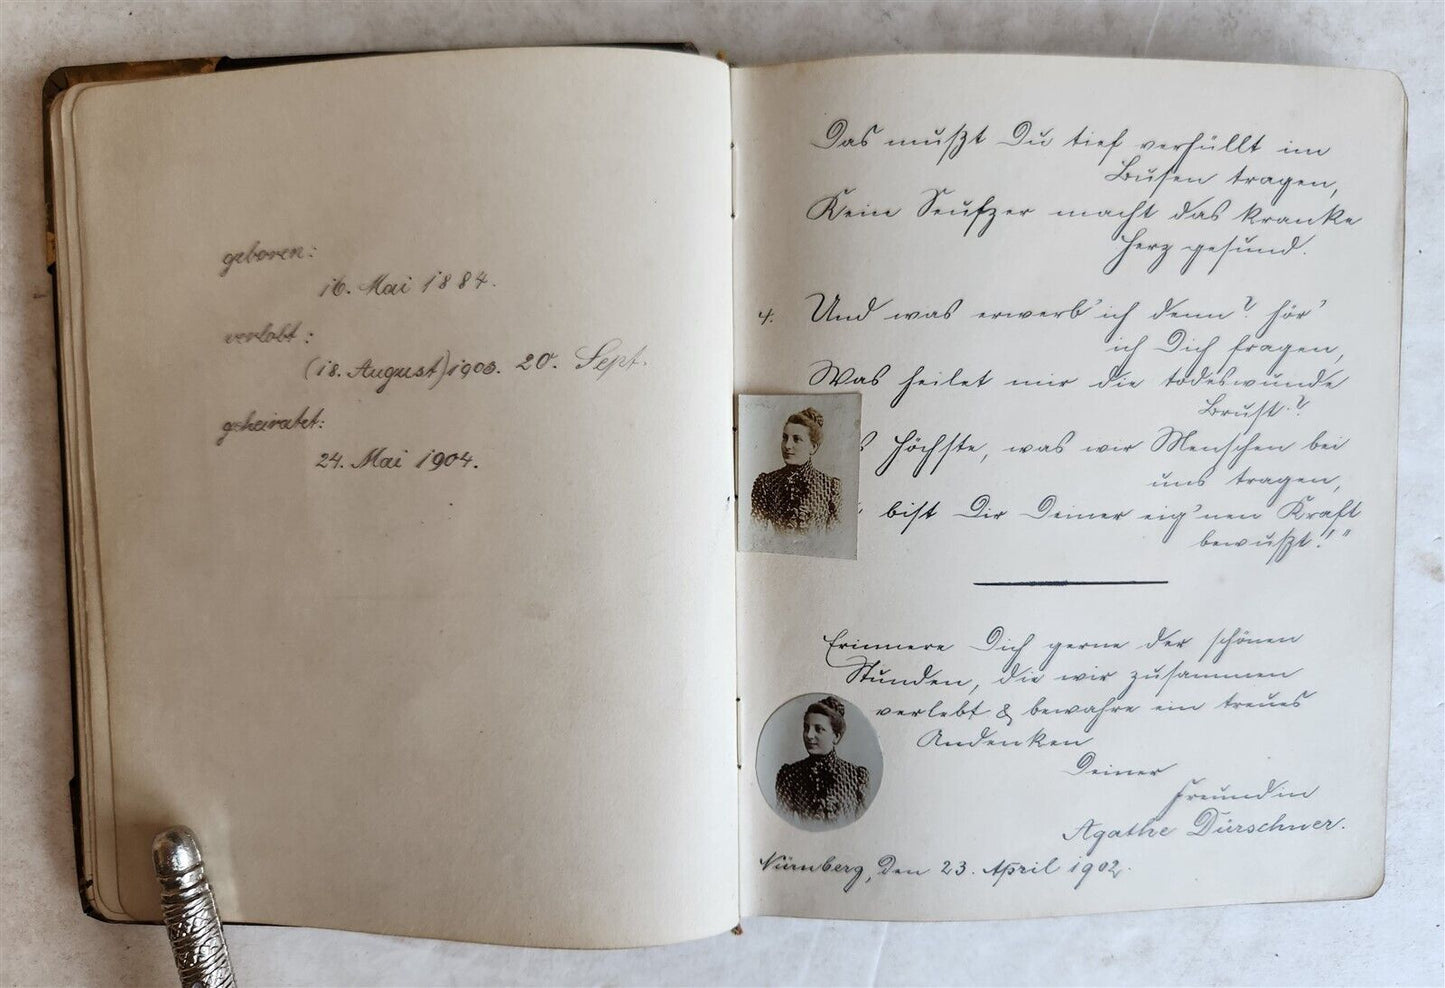 geboren:
16. Mai 1884.
verlobt:
(18. August) 1903. 20. Sept.
geheiratet:
24. Mai 1904.
Das mußt Du tief verhüllt im
Busen tragen,
Kein Seufzer macht das kranke
Herz gesund.
4. Und was erwerb' ich denn? hör'
ich Dich fragen,
Was heilet mir die todeswunde
Brust?
s Höchste, was wir Menschen bei
uns tragen,
bist Dir Deiner eig'nen Kraft
bewußt!"
Erinnere Dich gerne der schönen
Stunden, die wir zusammen
verlebt & bewahre ein treues
Andenken
Deiner
Freundin
Agathe Dürschner.
Nürnberg, Den 23. April 1902.